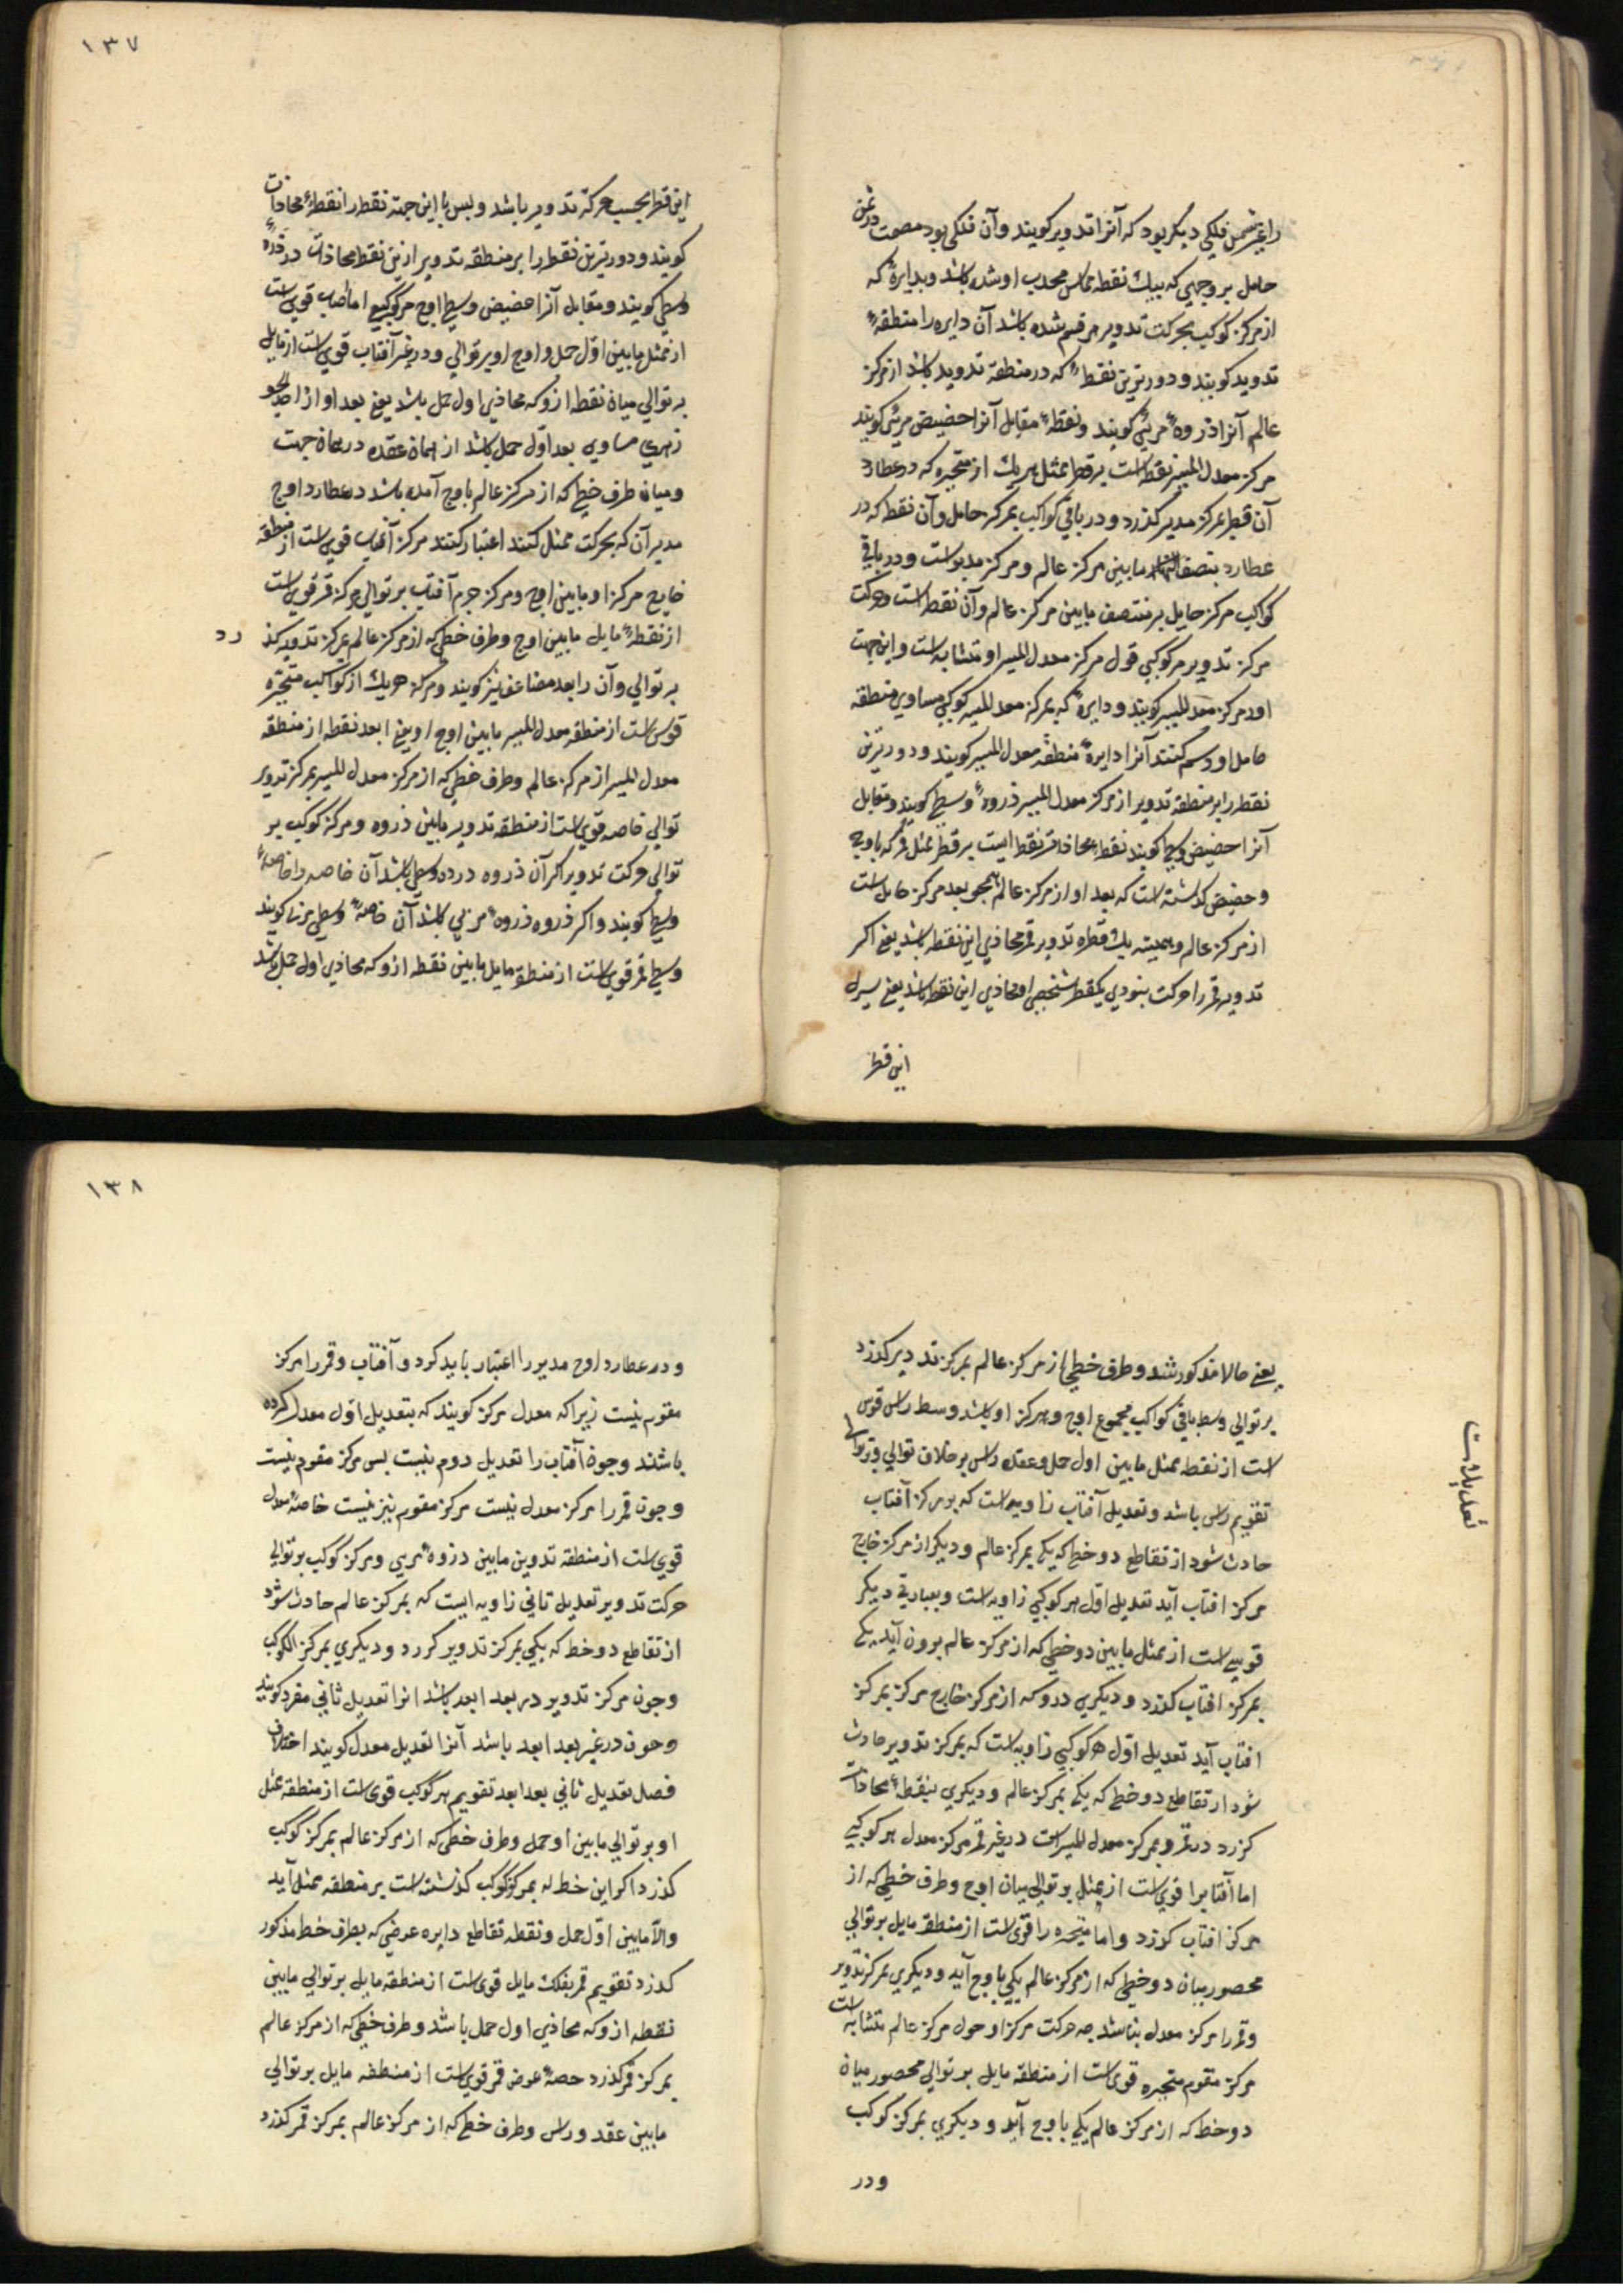 را غیر شمس فلکی دیکر بود که آنرا تدویر کویند وآن فلکی بود مصمت در ثخن
حامل بر وجهی که بیک نقطه مماس محدب او شده باشد وبدایرهٔ که
از مرکز کوکب بحرکت تدویر مرقسم شده باشد آن دایره را منطقهٔ
تدوید کویند و دورترین نقطهٔ که در منطقه تدوید باشد از مرکز
عالم آنرا ذروهٔ مرئی کویند ونقطهٔ مقابل آنرا حضیض مرئی کویند
مرکز معدل المسیر نقطه است بر قطر ممثل هریک از متحیره که در عطارد
آن قطر بمرکز مدیر کذرد و در باقی کواکب بمرکز حامل وآن نقطه که در
عطارد بتصف مابین مرکز عالم ومرکز مدیر است ودر باقی
کواکب مرکز حایل بر منتصف مابین مرکز عالم وآن نقطه است وحرکت
مرکز تدویر هر کوکبی قول مرکز معدل المسیر او متشابه است واین جهت
اورمرکز معدل المسیر کویند ودایرهٔ که بمرکز معدل المسیر کوکبی مساوی منطقه
حامل او رسم کنند آنرا دایرهٔ منطقهٔ معدل المسیر کویند ودورترین
نقطه را بر منطقه تدویر از مرکز معدل المسیر ذروهٔ وسطی کویند ومقابل
آنرا حضیض وسطی کویند نقطهٔ محاذات قمر نقطه ایست بر قطر ممثل قمر که باوج
وحضیض کذشته است که بعد او از مرکز عالم همچو بعد مرکز حامل است
از مرکز عالم وهمیشه یک قطره تدویر قمر محاذی این نقطه باشد یعنی اکر
تدویر قمر را حرکت بنودی یکقطر شخصی او محاذی این نقطه باشد یعنی سیرل
این قطر
۱۳۷
این قطر بحسب حرکة تدویر باشد وبس با این جهته نقطه را نقطهٔ محاذات
کویند ودورترین نقطه را بر منطقه تدویر ازین نقطه محاذات در ذروهٔ
وسطی کویند ومقابل آنرا حضیض وسطی اوج هر کوکبی اما صاب قوی است
از ممثل مابین اوّل حمل واوج او بر توالی ودر غیر آفتاب قوی است از مایل
بر توالی میان نقطه ازو که محاذی اول حمل باشد یعنی بعد او از
زهری مساوی بعد اوّل حمل باشد از همان عقده در همان جهت
ومیان طرف خطی که از مرکز عالم باوج آمده باشد در عطارد اوج
مدیر آن که بحرکت ممثل کنند اعتبار کنند مرکز آفتاب قوی است از منطقه
خارج مرکز او مابین اوج ومرکز جرم آفتاب بر توالی مرکز قمر قوی است
از نقطهٔ مایل مابین اوج وطرف خطی که از مرکز عالم بمرکز تدویر کذ رد
بر توالی وآن را بعد مضاعف نیز کویند ومرکز هریک از کواکب متحیّره
قوس است از منطقه معدل المسیر مابین اوج او یعنی ابعد نقطه از منطقه
معدل المسیر از مرکز عالم وطرف خطی که از مرکز معدل المسیر بمرکز تدویر
توالی خاصه قوی است از منطقه تدویر مابین ذروه ومرکز کوکب بر
توالی حرکت تدویر اکر آن ذروه دروه وسطی باشد آن خاصه را خاصهٔ
وسطی کویند واکر ذروه ذروهٔ مرئی باشد آن خاصهٔ وسطی مرئی کویند
وسط قمر قوی است از منطقه مایل مابین نقطه ازو که محاذی اول حمل باشد
یعنی حالا مذکور شد وطرف خطی از مرکز عالم بمرکز تد دیر کذرد
بر توالی وسط باقی کواکب مجموع اوج ومرکز او باشد وسط راس قوس
است از نقطه ممثل مابین اول حمل وعقده راس بر خلاف توالی وبر توالی
تقویم راس باشد وتعدیل آفتاب زاویه است که بر مرکز آفتاب
حادث شود از تقاطع دو خط که یکی بمرکز عالم ودیکر از مرکز خارج
مرکز افتاب آید تعدیل اوّل هر کوکبی زاویه است وبعبارتی دیکر
قوسی است از ممثل مابین دو خطی که از مرکز عالم برون آید یکی
بمرکز افتاب کذرد ودیکری دروکه از مرکز خارج مرکز بمرکز
افتاب آید تعدیل اوّل هر کوکبی زاویه است که بمرکز تدویر حادث
شود از تقاطع دو خط که یکی بمرکز عالم ودیکری بنقطهٔ محاذات
کزرد در قمر وبمرکز معدل المسیر است در غیر قمر مرکز معدل هر کوکبی
اما آفتابرا قوی است از ممثل بر توالی میان اوج وطرف خطی که از
مرکز افتاب کوزد واما متحیره را قوی است از منطقه مایل بر توالی
محصور میان دو خطی که از مرکز عالم یکی باوج آید ودیکری بمرکز تدویر
وقمر را مرکز معدل بناشد چه حرکت مرکز او حول مرکز عالم متشابه است
مرکز مقوم متحیره قوی است از منطقه مایل بر توالی محصور میان
دو خط که از مرکز عالم یکی باوج آید ودیکری بمرکز کوکب
ودر
تعدیلات
۱۳۸
ودر عطارد اوج مدیر را اعتبار باید کرد وآفتاب وقمر را مرکز
مقوم نیست زیرا که معدل مرکز کویند که بتعدیل اوّل معدل کرده
باشند وجون آفتاب را تعدیل دوم نیست بس مرکز مقوم نیست
وجون قمر را مرکز معدل نیست مرکز مقوم نیز نیست خاصهٔ معدل
قوی است از منطقه تدوین مابین دزوهٔ مریی ومرکز کوکب بر توالی
حرکت تدویر تعدیل ثانی زاویه ایست که بمرکز عالم حادث شود
از تقاطع دو خط که یکی بمرکز تدویر کررد ودیکری بمرکز الکوکب
وجون مرکز تدویر در بعد ابعد باشد انرا تعدیل ثانی مفرد کویند
وجون در غیر بعد ابعد باشد آنرا تعدیل معدل کویند اختلاف
فصل تعدیل ثانی بعد ابعد تقویم هر کوکب قوی است از منطقه ممثل
او بر توالی مابین اوحمل وطرف خطی که از مرکز عالم بمرکز کوکب
کذرد اکر این خط له بمرکز کوکب کذشته است بر منطقه ممثل آید
والّا مابین اوّل حمل ونقطه تقاطع دایره عرضی که بطرف خط مذکور
کذرد تقویم قمر بفلک مایل قوی است از منطقه مایل بر توالی مابین
نقطه ازو که محاذی اول حمل باشد وطرف خطی که از مرکز عالم
بمرکز قمر کذرد حصهٔ عرض قمر قوی است از منطقه مایل بر توالی
مابین عقد وراس وطرف خط که از مرکز عالم بمرکز قمر کذرد